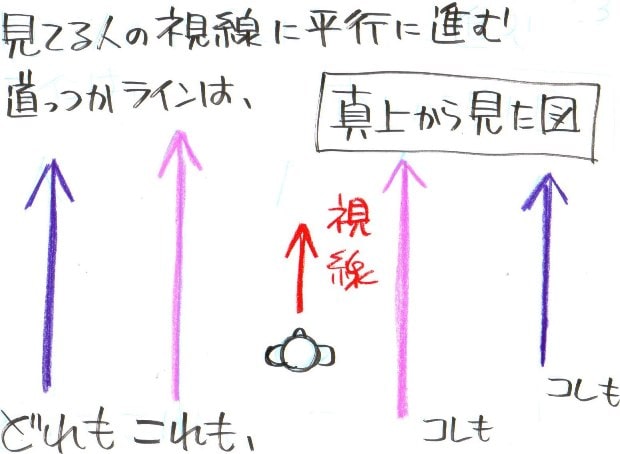 見てる人の視線に平行に進む
道っつかラインは、
真上から見た図
視線
どれもこれも、
コレも
コレも